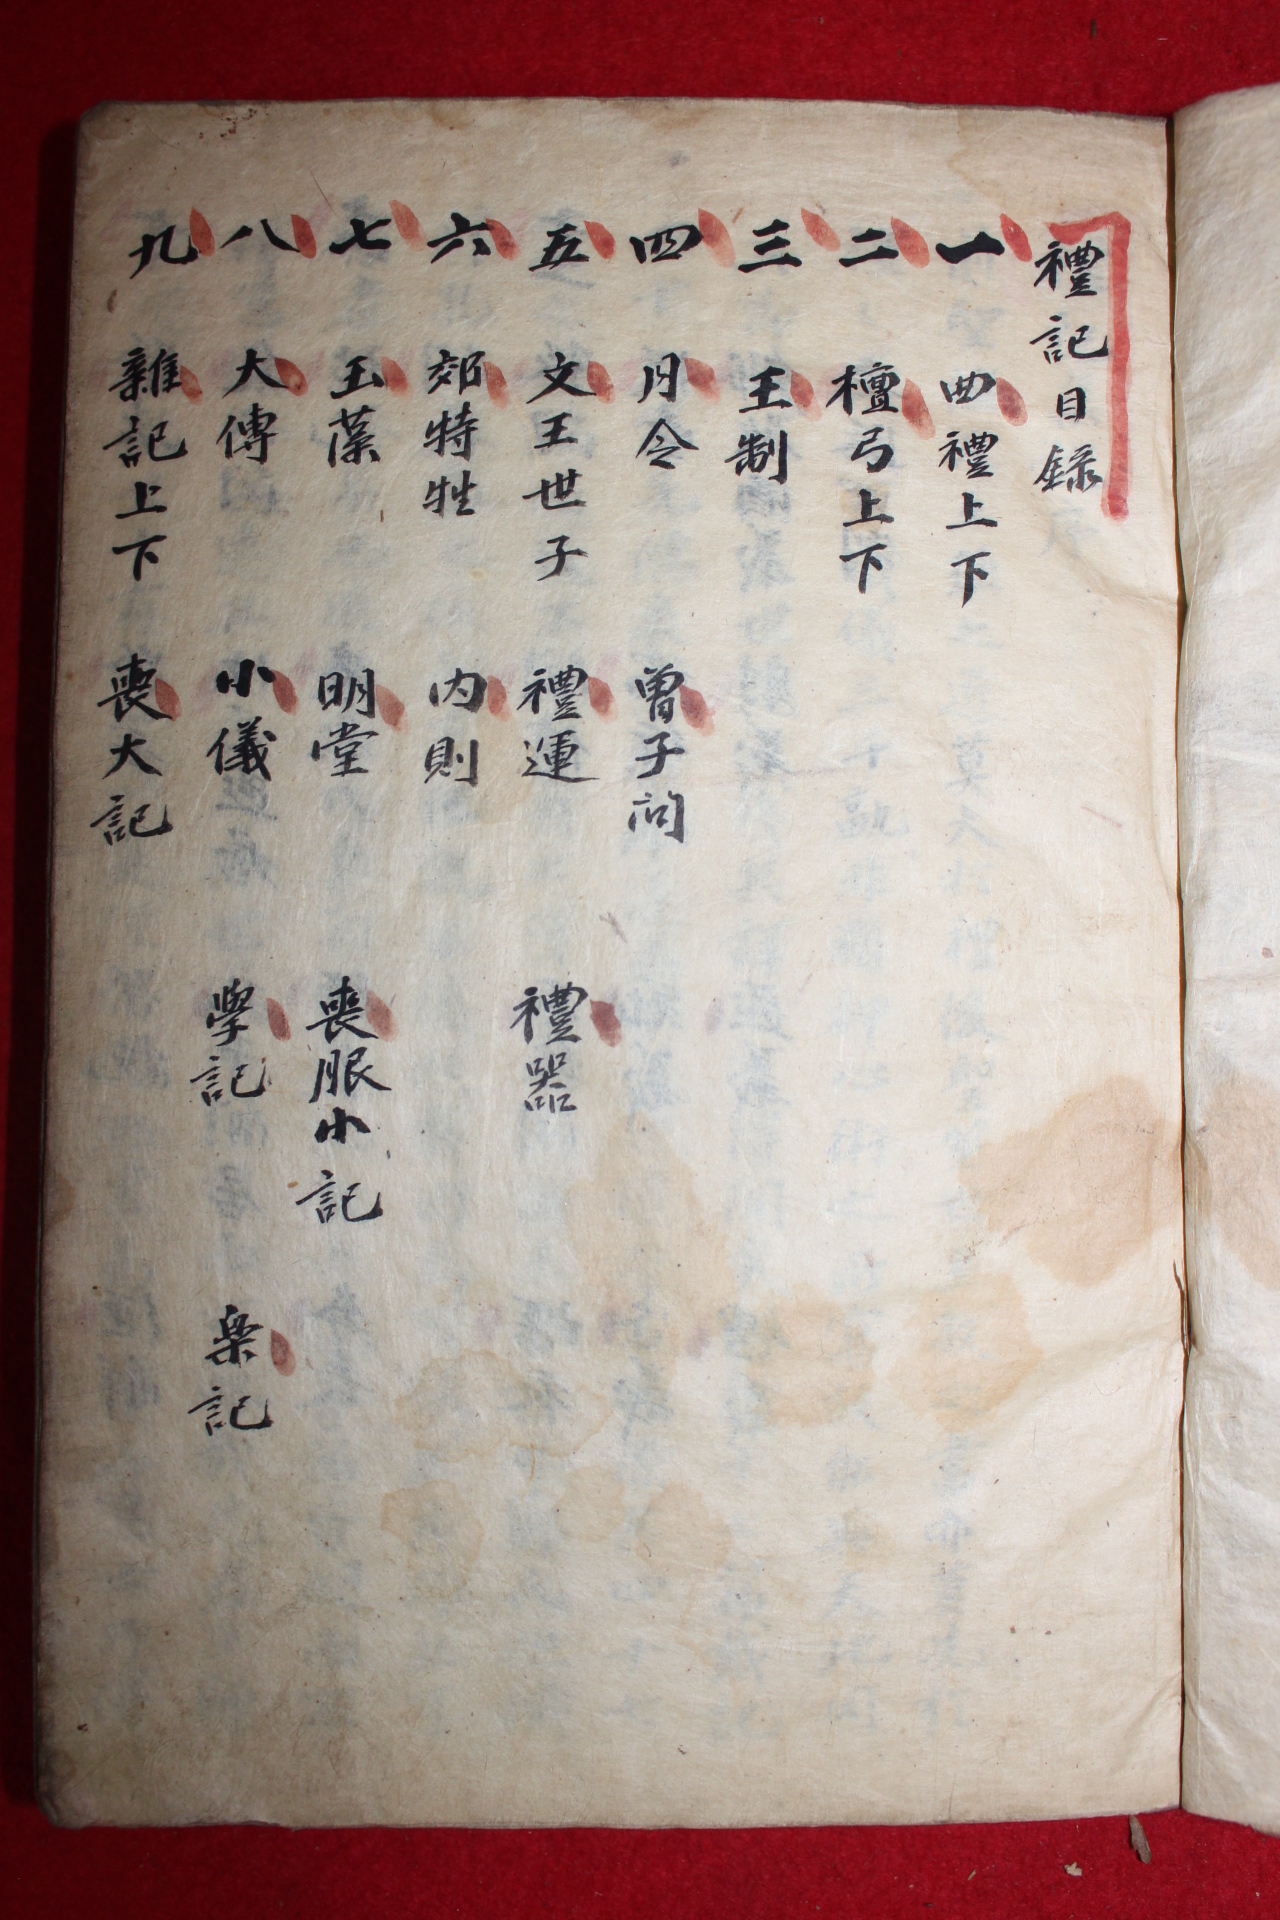 禮記目録
一 曲禮上下
二 檀弓上下
三 王制
四 月令 曾子問
五 文王世子 禮運 禮器
六 郊特牲 内則
七 玉藻 明堂 喪服小記
八 大傳 小儀 學記 樂記
九 雜記上下 喪大記